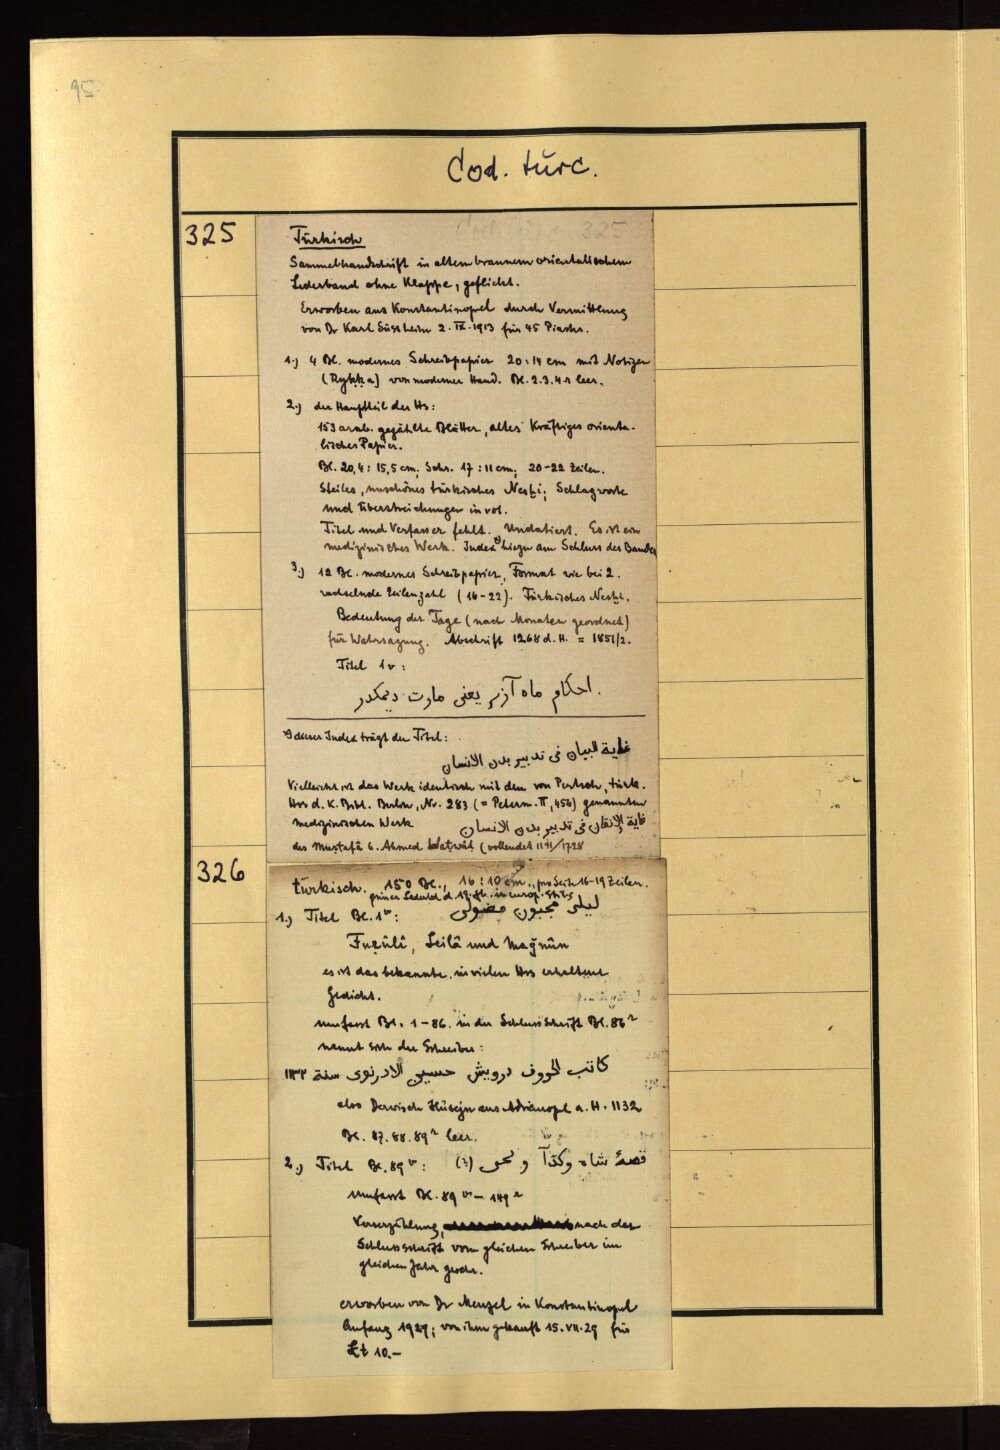 95
Cod. turc.
325
Türkisch
Sammelhandschrift in altem braunem orientalischem
Lederband ohne Klappe, geflickt.
Erworben aus Konstantinopel durch Vermittlung
von Dr Karl Süssheim 2. IX. 1913 für 45 Piaster.
1.) 4 Bl. modernes Schreibpapier 20:14 cm mit Notizen
von moderner Hand. Bl. 2.3.4r leer.
2.) der Hauptteil der Hs:
153 arab. gezählte Blätter, altes kräftiges orienta-
lisches Papier.
Bl. 20,4 : 15,5 cm, Schr. 17 : 11 cm, 20-22 Zeilen.
Steiles, unschönes türkisches Nesḫi; Schlagworte
und Überstreichungen in rot.
Titel und Verfasser fehlt. Undatiert. Es ist ein
medizinisches Werk. Index hiezu am Schluss des Bandes
3.) 12 Bl. modernes Schreibpapier, Format wie bei 2.
wechselnde Zeilenzahl (16-22). Türkisches Nesḫi.
Bedeutung der Tage (nach Monaten geordnet)
für Wahrsagung. Abschrift 1268 d. H. = 1851/2.
Titel 1v:
احكام ماه آزر يعنى مارت ديمكدر.
dieser Index trägt den Titel:
غاية البيان فى تدبير بدن الانسان
Vielleicht ist das Werk identisch mit dem von Pertsch, türk.
Hss d. K. Bibl. Berlin, Nr. 283 (= Peterm. II, 456) genannten
medizinischen Werk غاية الإتقان فى تدبير بدن الانسان
des Muṣṭafâ b. Aḥmed (vollendet 1141/1728
326
türkisch. 150 Bl., 16:10 cm., pro Seite 16-19 Zeilen.
grüner Lederbd d. 19. Jh. in europ. Stil
1.) Titel Bl. 1v: ليلى مجنون فضولى
Fuẓûlî, Leilâ und Maǧnûn
es ist das bekannte, in vielen Hss erhaltene
Gedicht.
umfasst Bl. 1-86. in der Schlussschrift Bl. 86r
nennt sich der Schreiber:
كاتب الحروف درويش حسين الادرنوى سنة ١١٣٢
also Derwisch Hüsejn aus Adrianopel a. H. 1132
Bl. 87.88.89r leer.
2.) Titel Bl. 89v: (?) قصهٔ شاه وكدآ و
umfasst Bl. 89v - 149r
Verserzählung, nach der
Schlussschrift vom gleichen Schreiber im
gleichen Jahr geschr.
erworben von Dr Menzel in Konstantinopel
Anfang 1929; von ihm gekauft 15.VII.29 für
£t 10.-